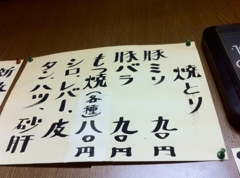 焼とり
豚ミリ 九〇円
豚バラ 九〇円
もつ焼(各種)八〇円
シロ、レバー、皮
タン、ハツ、砂肝